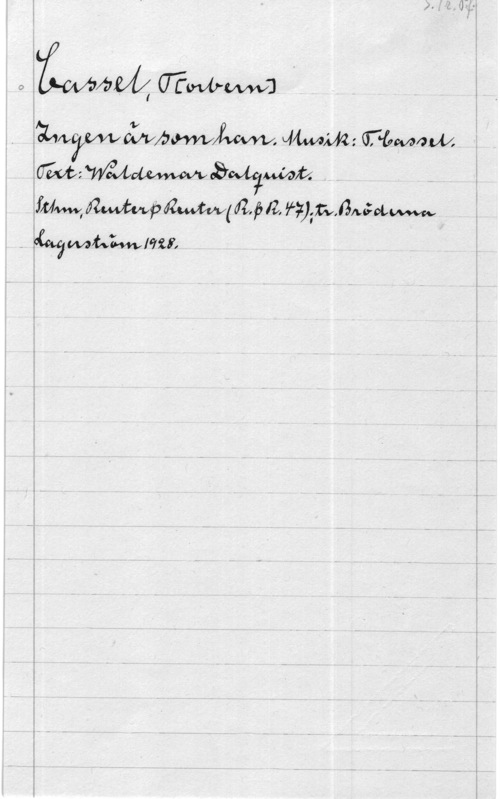 Cassel, T[orbern]
Ingen är som han. Musik: T. Cassel.
Text: Waldemar Dalquist.
Sthm, Reuter & Reuter (R. & R. 47); tr. Bröderna
Lagerström 1928.